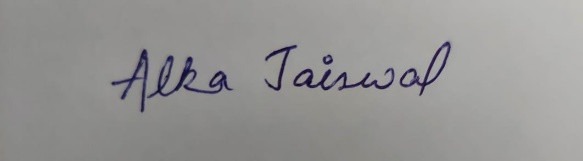 Alka Jaiswal